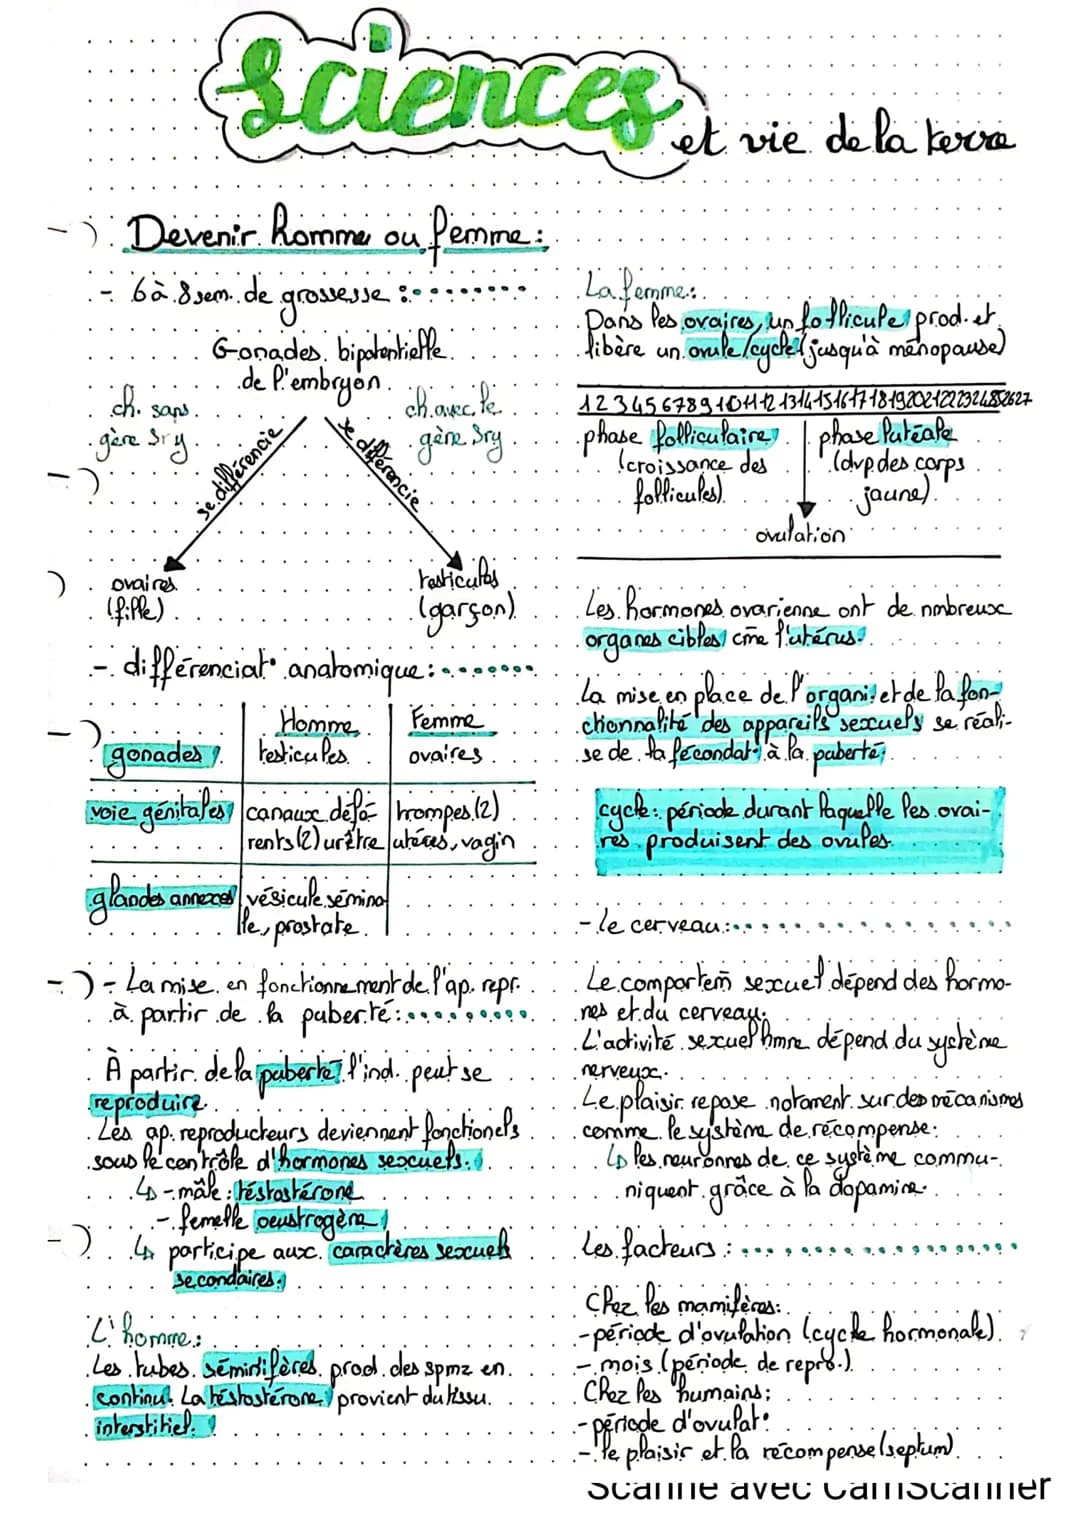 Sciences
et vie de la terre
Devenir homme ou femme :
- 6 à 8 sem. de grossesse :
Gonades bipotentielle
de l'embryon
ch. sans
gène Sry
ch. avec le
gène Sry
se différencie
se différencie
ovaires
(fille)
testicules
(garçon)
- différenciat° anatomique :
Homme
Femme
gonades
testicules
ovaires
voie génitales
canaux défé-
rents (2) urètre
trompes (2)
utérus, vagin
glandes annexes
vésicule sémina
lle, prostate
- La mise en fonctionnement de l'ap. repr.
à partir de la puberté :
À partir de la puberté, l'ind. peut se
reproduire.
Les ap. reproducteurs deviennent fonctionels
sous le contrôle d'hormones sexuels.
↳ - mâle : téstostérone
- femelle oeustrogène
↳ participe aux caractères sexuels
secondaires.
L'homme :
Les tubes séminifères prod. des spmz en
continu. La téstostérone provient du tissu
interstitiel.
La femme :
Dans les ovaires, un follicule prod. et
libère un ovule/cycle (jusqu'à ménopause)
1 2 3 4 5 6 7 8 9 10 11 12 13 14 15 16 17 18 19 20 21 22 23 24 25 26 27
phase folliculaire
(croissance des
follicules)
phase lutéale
(dvp. des corps
jaune)
ovulation
Les hormones ovarienne ont de nmbreux
organes cibles cme l'utérus.
La mise en place de l'organi. et de la fon-
ctionnalité des appareils sexuels se réali-
se de la fécondat° à la puberté,
cycle : période durant laquelle les ovai-
res produisent des ovules.
- le cerveau :
Le comportem̃ sexuel dépend des hormo-
nes et du cerveau.
L'activité sexuel hmne dépend du système
nerveux.
Le plaisir repose notament sur des mécanismes
comme le système de récompense :
↳ les neuronnes de ce système commu-
niquent grâce à la dopamine.
Les facteurs :
Chez les mamifères :
- période d'ovulation (cycle hormonale)
- mois (période de repro.)
Chez les humains :
- période d'ovulat°
- le plaisir et la récompense (septum)
Scanné avec CamScanner